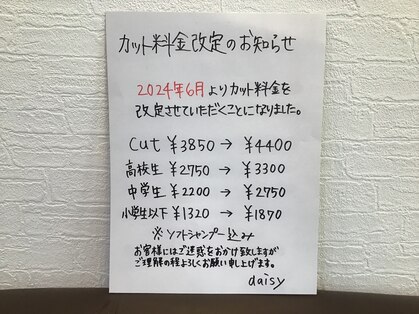 カット料金改定のお知らせ
2024年6月よりカット料金を
改定させていただくことになりました。
cut ¥3850 → ¥4400
高校生 ¥2750 → ¥3300
中学生 ¥2200 → ¥2750
小学生以下 ¥1320 → ¥1870
※ソフトシャンプー込み
お客様にはご迷惑をおかけ致しますが
ご理解の程よろしくお願い申し上げます。
daisy